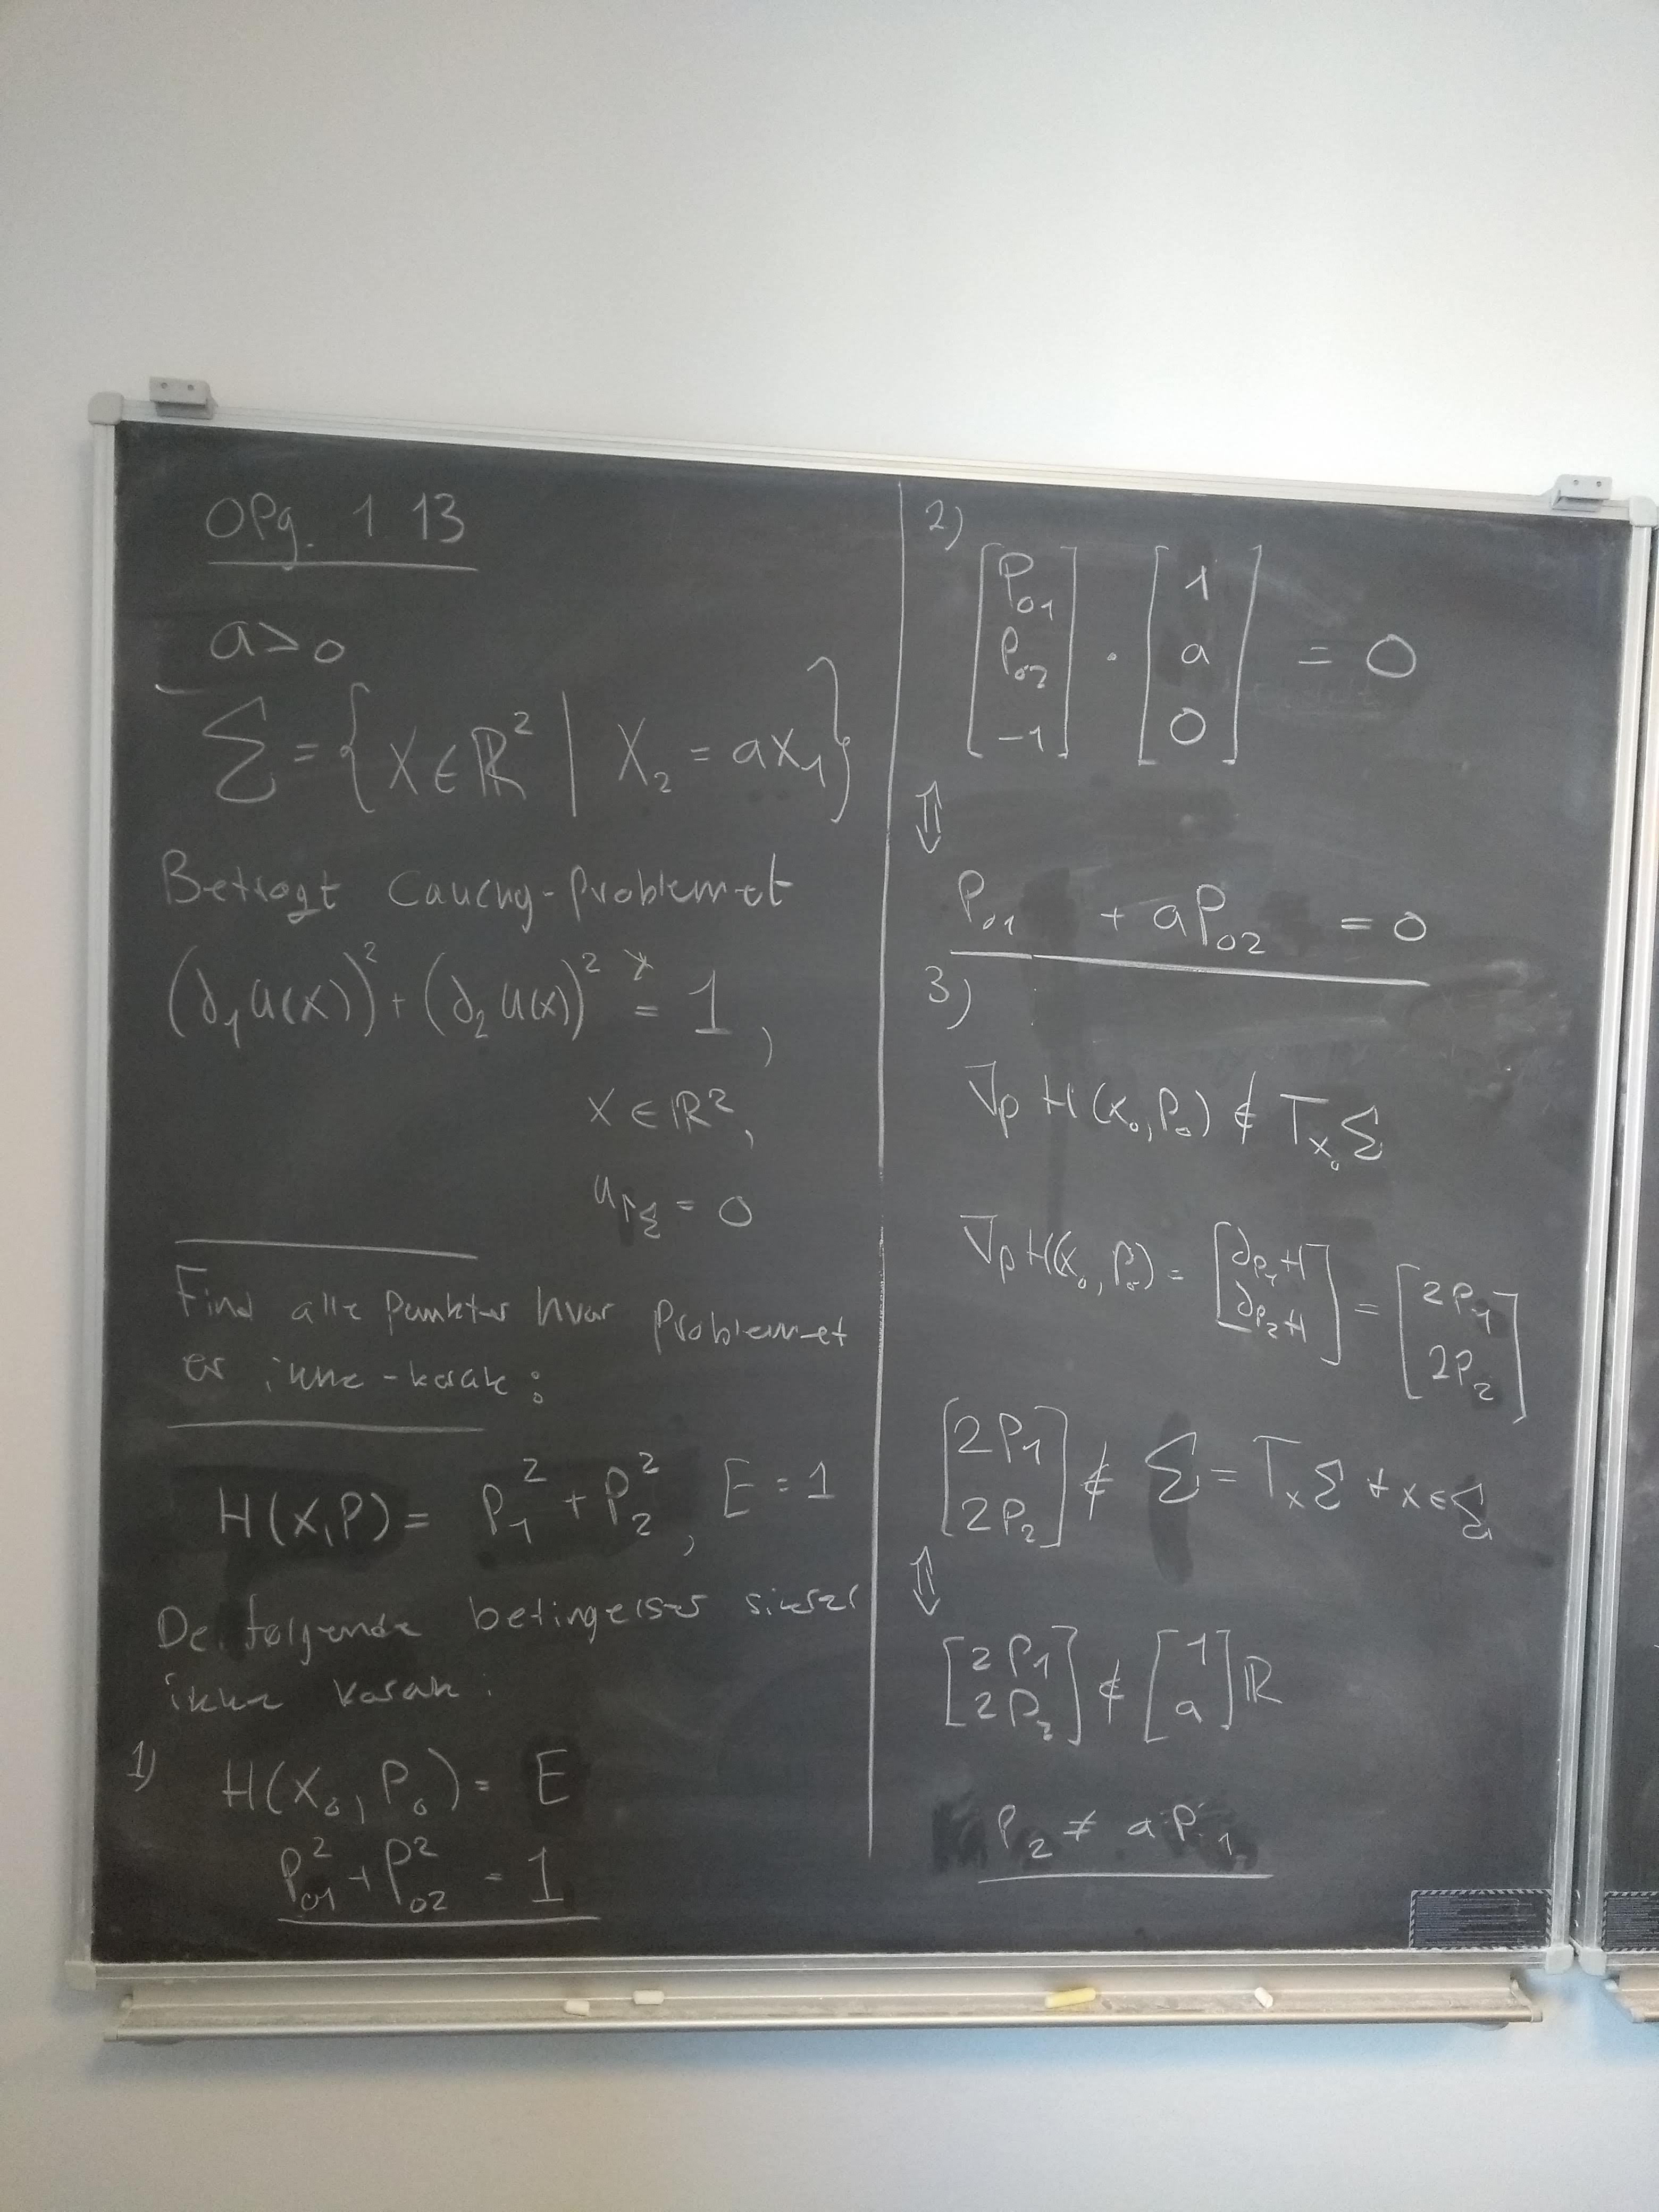 Opg. 1 13
a>0
Σ = {x∈ℝ² | x₂ = ax₁}
Betragt Cauchy-problemet
(∂₁u(x))² + (∂₂u(x))² = 1,
x∈ℝ²,
u↾Σ = 0
Find alle punkter hvor problemet
er ikke-karak:
H(x,P) = P₁² + P₂², E = 1
De følgende betingelser sikrer
ikke karak:
1) H(x₀, P₀) = E
P₀₁² + P₀₂² = 1
2)
[P₀₁ P₀₂ -1] · [1 a 0] = 0
⇕
P₀₁ + aP₀₂ = 0
3)
∇p H(x₀, P₀) ∉ Tx₀Σ
∇p H(x₀, P₀) = [∂P₁H ∂P₂H] = [2P₁ 2P₂]
[2P₁ 2P₂] ∉ Σ = TxΣ ∀x∈Σ
⇕
[2P₁ 2P₂] ∉ [1 a]ℝ
P₂ ≠ aP₁